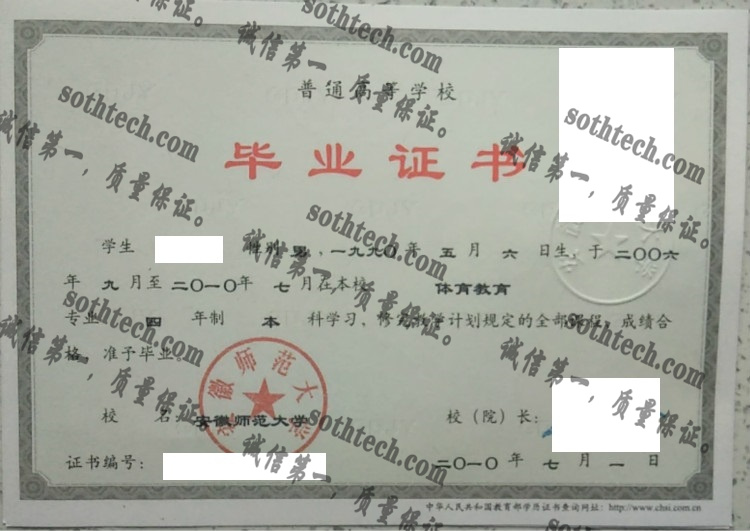 普通高等学校
毕业证书
学生 性别 男，一九九〇年 五 月 六 日生，于 二〇〇六
年 九 月至 二〇一〇年 七 月在本校 体育教育
专业 四 年制 本 科学习，修完教学计划规定的全部课程，成绩合
格，准予毕业。
校 名： 安徽师范大学 校（院）长：
证书编号： 二〇一〇 年 七 月 一 日
中华人民共和国教育部学历证书查询网址：http://www.chsi.com.cn
安徽师范大学
sothtech.com
诚信第一，质量保证。
sothtech.com
诚信第一，质量保证。
sothtech.com
诚信第一，质量保证。
sothtech.com
诚信第一，质量保证。
sothtech.com
诚信第一，质量保证。
sothtech.com
诚信第一，质量保证。
sothtech.com
诚信第一，质量保证。
sothtech.com
诚信第一，质量保证。